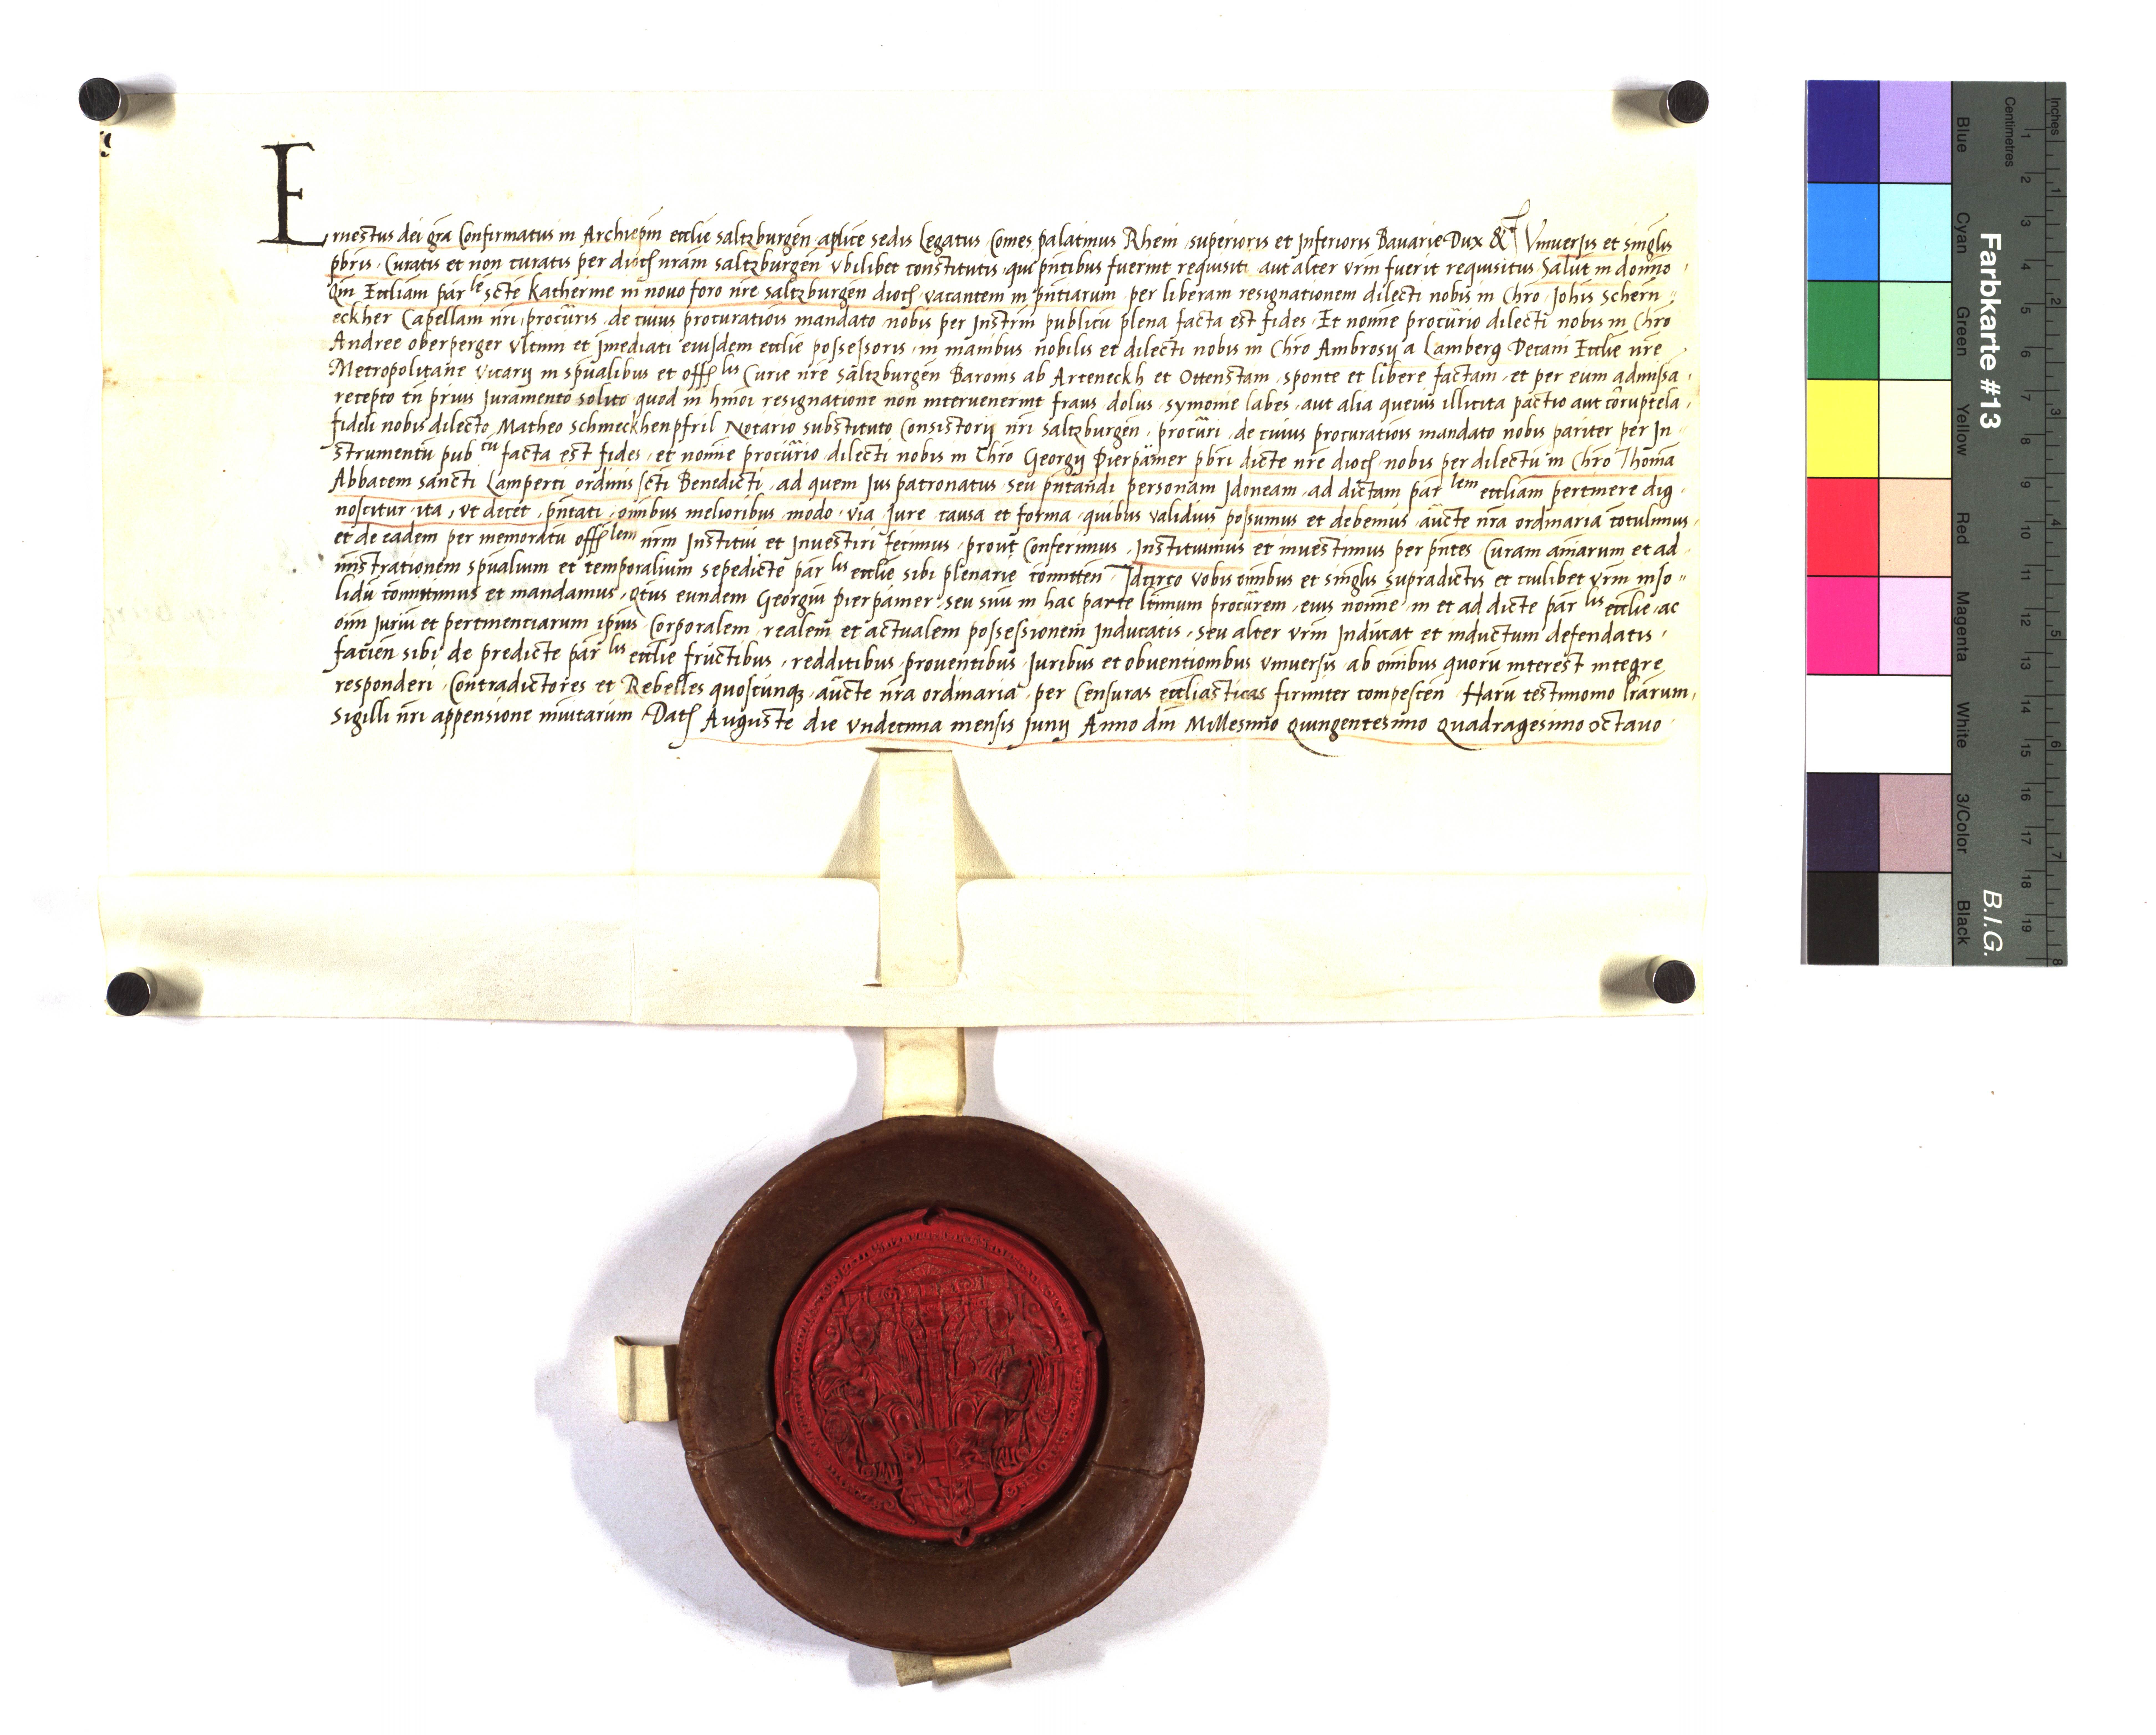 Ernestus dei gra Confirmatus in Archiepm ecclie saltzburgen aplice sedis Legatus Comes palatinus Rheni superioris et Inferioris Bavarie Dux &c Vniuersis et singlis
pbris Curatis et non curatis per dioc nram saltzburgen vbilibet constitutis qui pntibus fuerint requisiti aut alter vrm fuerit requisitus Salut in domino
Qm Eccliam par le scte Katherine in novo foro nre saltzburgen dioc vacantem in pntiarum per liberam resignationem dilecti nobis in Chro Johis Schern
eckher Capellani nri procuris de cuius procuratiois mandato nobis per Instrm publicu plena facta est fides Et nomine procurio dilecti nobis in Chro
Andree oberperger vltimi et Imediati eiusdem ecclie possessoris in manibus nobilis et dilecti nobis in Chro Ambrosij a Lamberg Decani Ecclie nre
Metropolitane vicarij in spualibus et offlis Curie nre saltzburgen Baronis ab Arteneckh et Ottenstain sponte et libere factam et per eum admissa
recepto tn prius Juramento solito quod in hmoi resignatione non intervenerint fraus dolus symonie labes aut alia queuis illicita pactio aut coruptela
fideli nobis dilecto Matheo schmeckhenpfril Notario substituto Consistorij nri saltzburgen procuri de cuius procuratiois mandato nobis pariter per In
strumentu pub cu facta est fides et nomine procurio dilecti nobis in Chro Georgij Pierpämer pbri dicte nre dioc nobis per dilectu in Chro Thoma
Abbatem sancti Lamperti ordinis scti Benedicti ad quem Jus patronatus seu pntandi personam Idoneam ad dictam par lem eccliam pertinere dig
noscitur ita vt decet pntati omibus melioribus modo via Jure causa et forma quibus validius possumus et debemus aucte nra ordinaria cotulimus
et de eadem per memoratu offlem nrm Institui et Inuestiri fecimus prout Conferimus Instituimus et inuestimus per pntes Curam aiarum et ad
mistrationem spualium et temporalium sepedicte par lis ecclie sibi plenarie comitten Idcirco vobis omibus et singlis supradictis et cuilibet vrm inso
lidu comittimus et mandamus qtus eundem Georgiu pierpamer seu suu in hac parte ltimum procurem eius nomine in et ad dicte par lis ecclie ac
oim Juriu et pertinentiarum ipius Corporalem realem et actualem possessionem Inducatis seu alter vrm Inducat et inductum defendatis
facien sibi de predicte par lis ecclie fructibus redditibus proventibus Juribus et obuentionibus vniuersis ab omibus quoru interest integre
responderi Contradictores et Rebelles quoscunq aucte nra ordinaria per Censuras eccliasticas firmiter compescen Haru testimonio lrarum
sigilli nri appensione munitarum Dat Auguste die vndecima mensis Junij Anno dni Millesimo quingentesimo quadragesimo octauo
Farbkarte #13
B.I.G.
Inches
Centimetres
1 2 3 4 5 6 7 8 9 10 11 12 13 14 15 16 17 18 19
1 2 3 4 5 6 7 8
Blue
Cyan
Green
Yellow
Red
Magenta
White
3/Color
Black